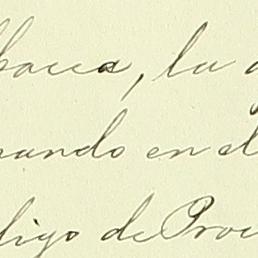 bacca, la
ando en el
digo de Proce